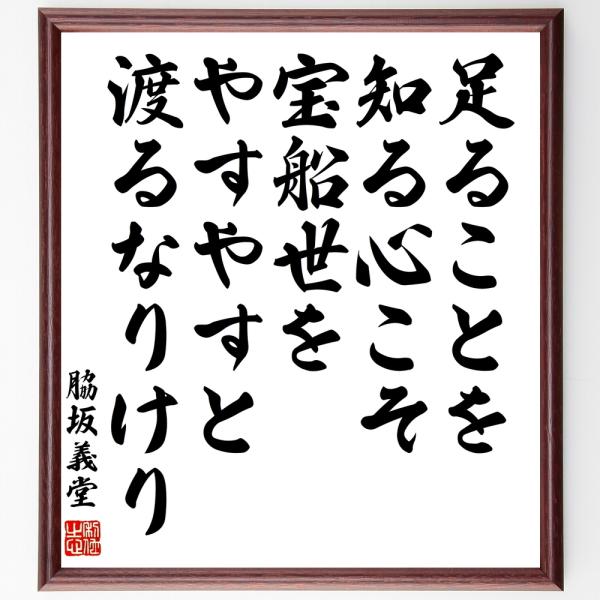 足ることを
知る心こそ
宝船世を
やすやすと
渡るなりけり
脇坂義堂